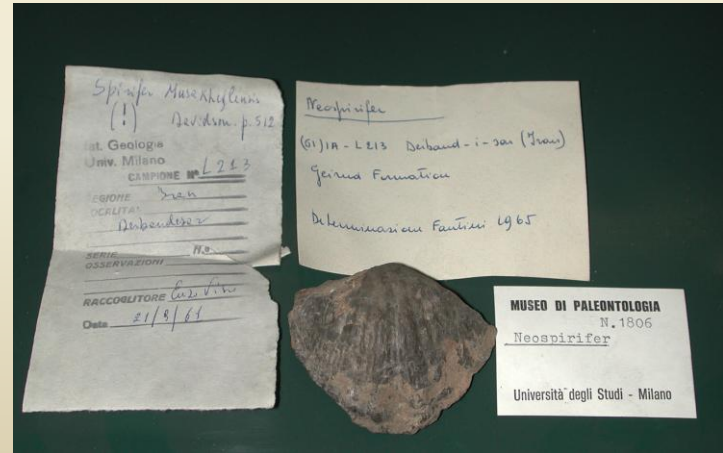 Spirifer Musakheylensis
(!) Davidson. p. 512
Ist. Geologia
Univ. Milano
CAMPIONE Nº L 213
REGIONE Iran
LOCALITÀ
SERIE No
OSSERVAZIONI
RACCOGLITORE
Data 21/8/61
Neospirifer
(GI)IA - L213 Derband-i-sar (Iran)
Geirud Formation
Determinazione Fantini 1965
MUSEO DI PALEONTOLOGIA
N. 1806
Neospirifer
Università degli Studi - Milano